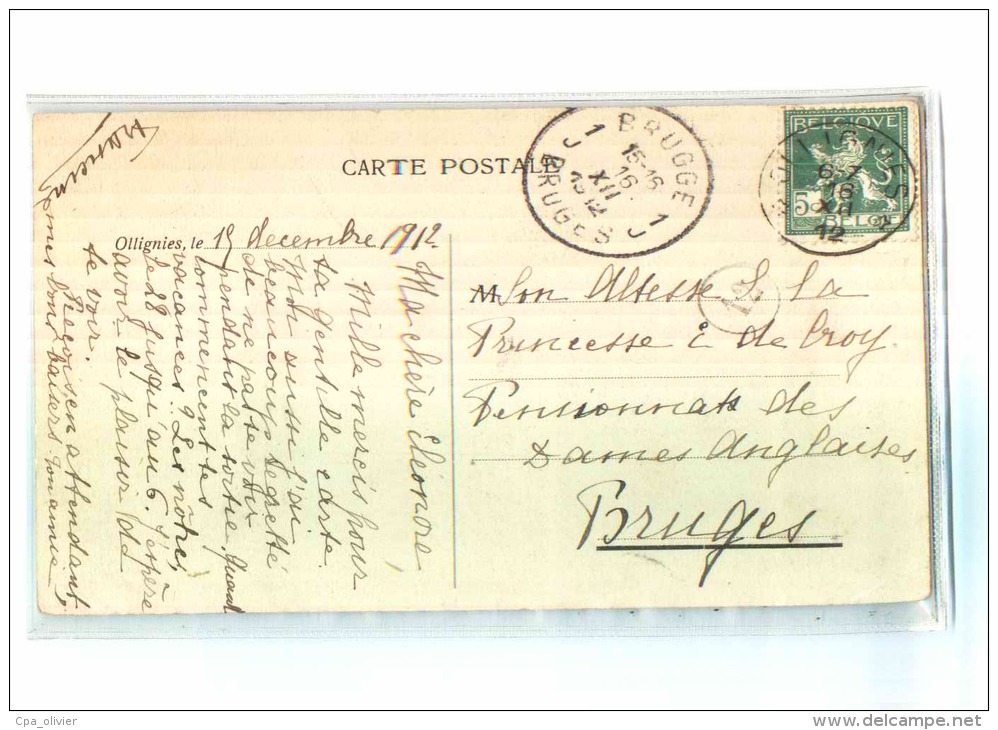 CARTE POSTALE
Ollignies, le 15 decembre 1912
Ma chère Eléonore,
Mille mercis pour
ta gentille carte.
Moi aussi j'ai
beaucoup regretté
de ne pas te voir
pendant la sortie. Quand
commencent tes
vacances? Les nôtres
le 28 jusqu'au 6. J'espère
avoir le plaisir de
te voir.
Reçois en attendant,
mes bons baisers
BRUGGE
1 1
15-16
16
XII
1912
BRUGES
BELGIQUE
5 5
BELGIË
OLLIGNIES
6-7
16
XII
12
M Son Altesse S. La
Princesse E de Croy.
Pensionnat des
Dames Anglaises
Bruges
Cpa_olivier
www.delcampe.net